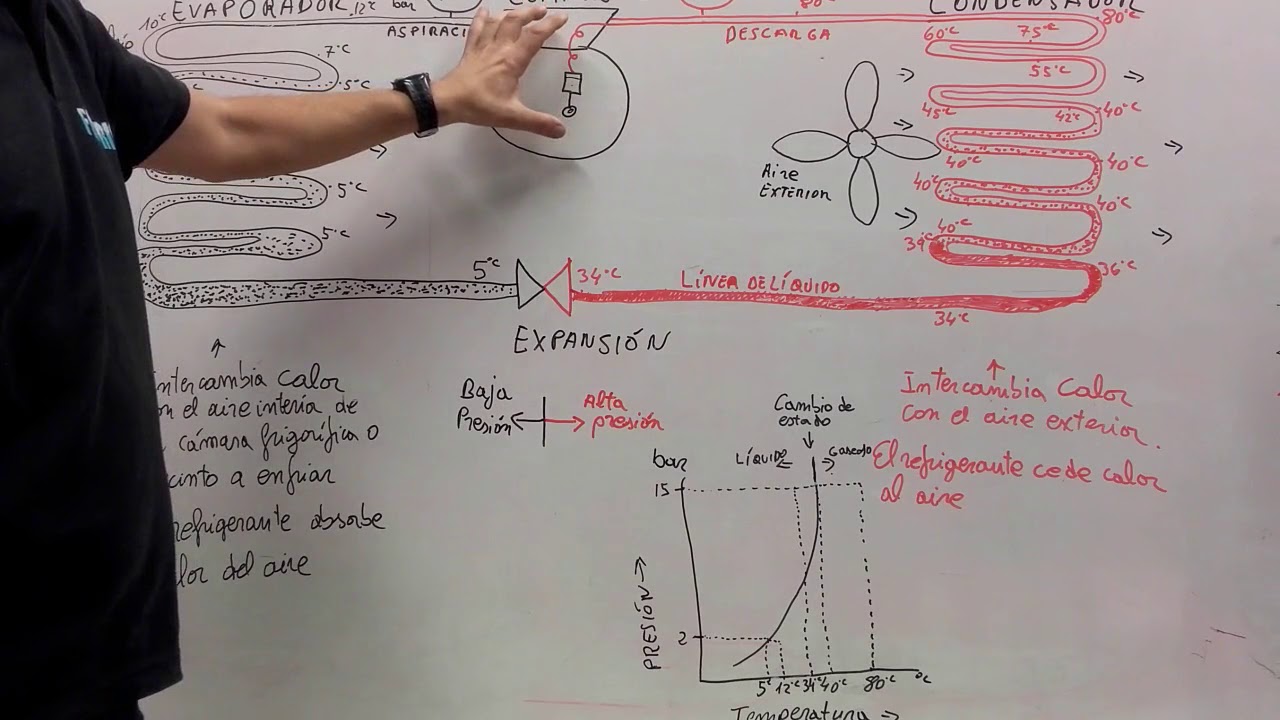 EVAPORADOR
12°C
bar
10°C
ASPIRACI
7°C
5°C
5°C
5°C
5°C
CONDENSADOR
80°C
DESCARGA
80°C
60°C
75°C
55°C
45°C
42°C
40°C
40°C
40°C
40°C
40°C
40°C
39°C
36°C
34°C
34°C
Aire
EXTERIOR
LÍNEA DE LÍQUIDO
EXPANSIÓN
Intercambia Calor
con el aire interia de
cámara frigorífica o
cinto a enfriar
refrigerante absorbe
lor del aire
Baja
Presión
Alta
presión
Cambio de
estado
LÍQUIDO
Gaseoso
bar
15
2
PRESIÓN
5°C
12°C
34°C
40°C
80°C
°C
Temperatura
Intercambia Calor
con el aire exterior.
El refrigerante cede calor
al aire